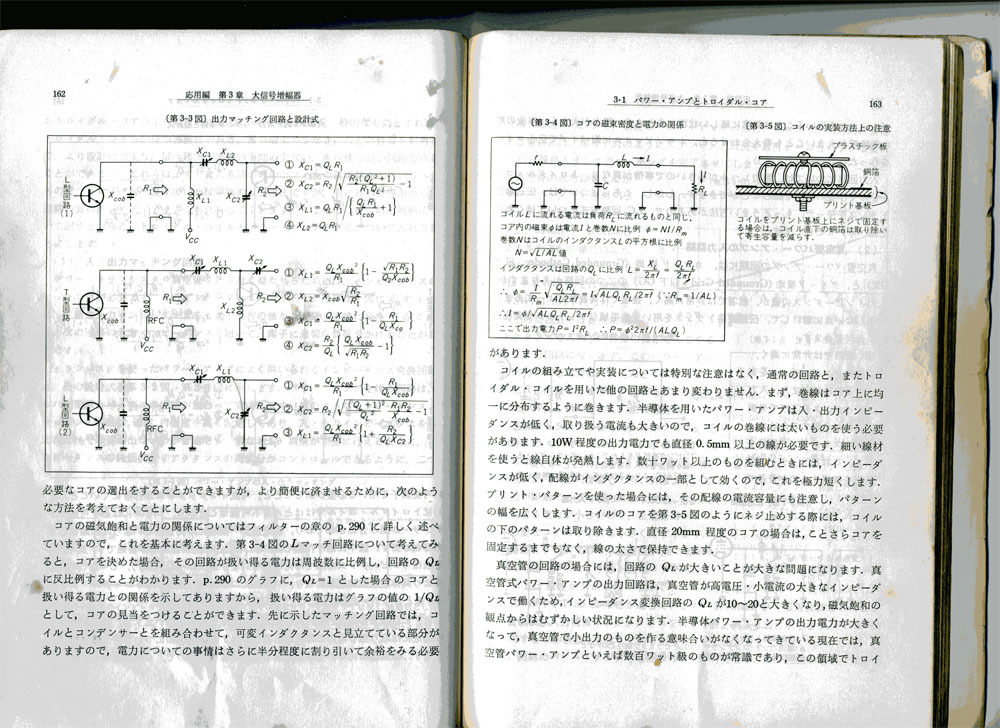 162
応用編　第3章　大信号増幅器
〔第3-3図〕出力マッチング回路と設計式
L型回路(1)
Xcob
R1
XC1
XL2
XL1
XC2
R2
VCC
① XC1=QLR1
② XC2=R2/√(R2(QL²+1)/(R1QL²)-1)
③ XL1=QLR1/{QLR1/Xcob+1}
④ XL2=QLR1
T型回路
Xcob
R1
RFC
VCC
XC1
XL1
XC2
XL2
R2
L型回路(2)
Xcob
R1
RFC
VCC
XC1
XL1
XC2
R2
必要なコアの選出をすることができますが，より簡便に済ませるために，次のよう
な方法を考えておくことにします．
コアの磁気飽和と電力の関係についてはフィルターの章の p.290 に詳しく述べ
ていますので，これを基本に考えます．第3-4図のLマッチ回路について考えてみ
ると，コアを決めた場合，その回路が扱い得る電力は周波数に比例し，回路の QL
に反比例することがわかります．p.290 のグラフに，QL=1 とした場合のコアと
扱い得る電力との関係を示してありますから，扱い得る電力はグラフの値の 1/QL
として，コアの見当をつけることができます．先に示したマッチング回路では，コ
イルとコンデンサーとを組み合わせて，可変インダクタンスと見立てている部分が
ありますので，電力についての事情はさらに半分程度に割り引いて余裕をみる必要
3·1　パワー・アンプとトロイダル・コア
163
〔第3-4図〕コアの磁束密度と電力の関係
L
I
C
I
RL
コイルLに流れる電流は負荷RLに流れるものと同じ．
コア内の磁束φは電流Iと巻数Nに比例 φ=NI/Rm
巻数NはコイルのインダクタンスLの平方根に比例
N=√L/AL値
インダクタンスは回路のQLに比例 L=XL/2πf=QLRL/2πf
∴φ=I/Rm√(QLRL/AL2πf)=I√ALQLRL/2πf (∵Rm=1/AL)
∴I=φ/√ALQLRL/2πf
ここで出力電力P=I²RL ∴P=φ²2πf/(ALQL)
〔第3-5図〕コイルの実装方法上の注意
プラスチック板
銅箔
プリント基板
コイルをプリント基板上にネジで固定す
る場合は，コイル直下の銅箔は取り除い
て寄生容量を減らす．
があります．
コイルの組み立てや実装については特別な注意はなく，通常の回路と，またトロ
イダル・コイルを用いた他の回路とあまり変わりません．まず，巻線はコア上に均
一に分布するように巻きます．半導体を用いたパワー・アンプは入・出力インピー
ダンスが低く，取り扱う電流も大きいので，コイルの巻線には太いものを使う必要
があります．10W 程度の出力電力でも直径 0.5mm 以上の線が必要です．細い線材
を使うと線自体が発熱します．数十ワット以上のものを組むときには，インピーダ
ンスが低く，配線がインダクタンスの一部として効くので，これを極力短くします．
プリント・パターンを使った場合には，その配線の電流容量にも注意し，パターン
の幅を広くします．コイルのコアを第3-5図のようにネジ止めする際には，コイル
の下のパターンは取り除きます．直径 20mm 程度のコアの場合は，ことさらコアを
固定するまでもなく，線の太さで保持できます．
真空管の回路の場合には，回路の QL が大きいことが大きな問題になります．真
空管式パワー・アンプの出力回路は，真空管が高電圧・小電流の大きなインピーダ
ンスで働くため，インピーダンス変換回路の QL が10～20と大きくなり，磁気飽和の
観点からはむずかしい状況になります．半導体パワー・アンプの出力電力が大きく
なって，真空管で小出力のものを作る意味合いがなくなってきている現在では，真
空管パワー・アンプといえば数百ワット級のものが常識であり，この領域でトロイ